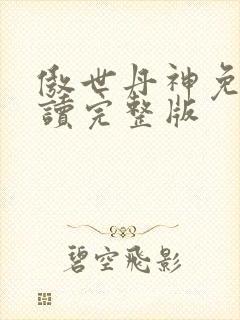 傲世丹神免
讀完整版
碧空飛影